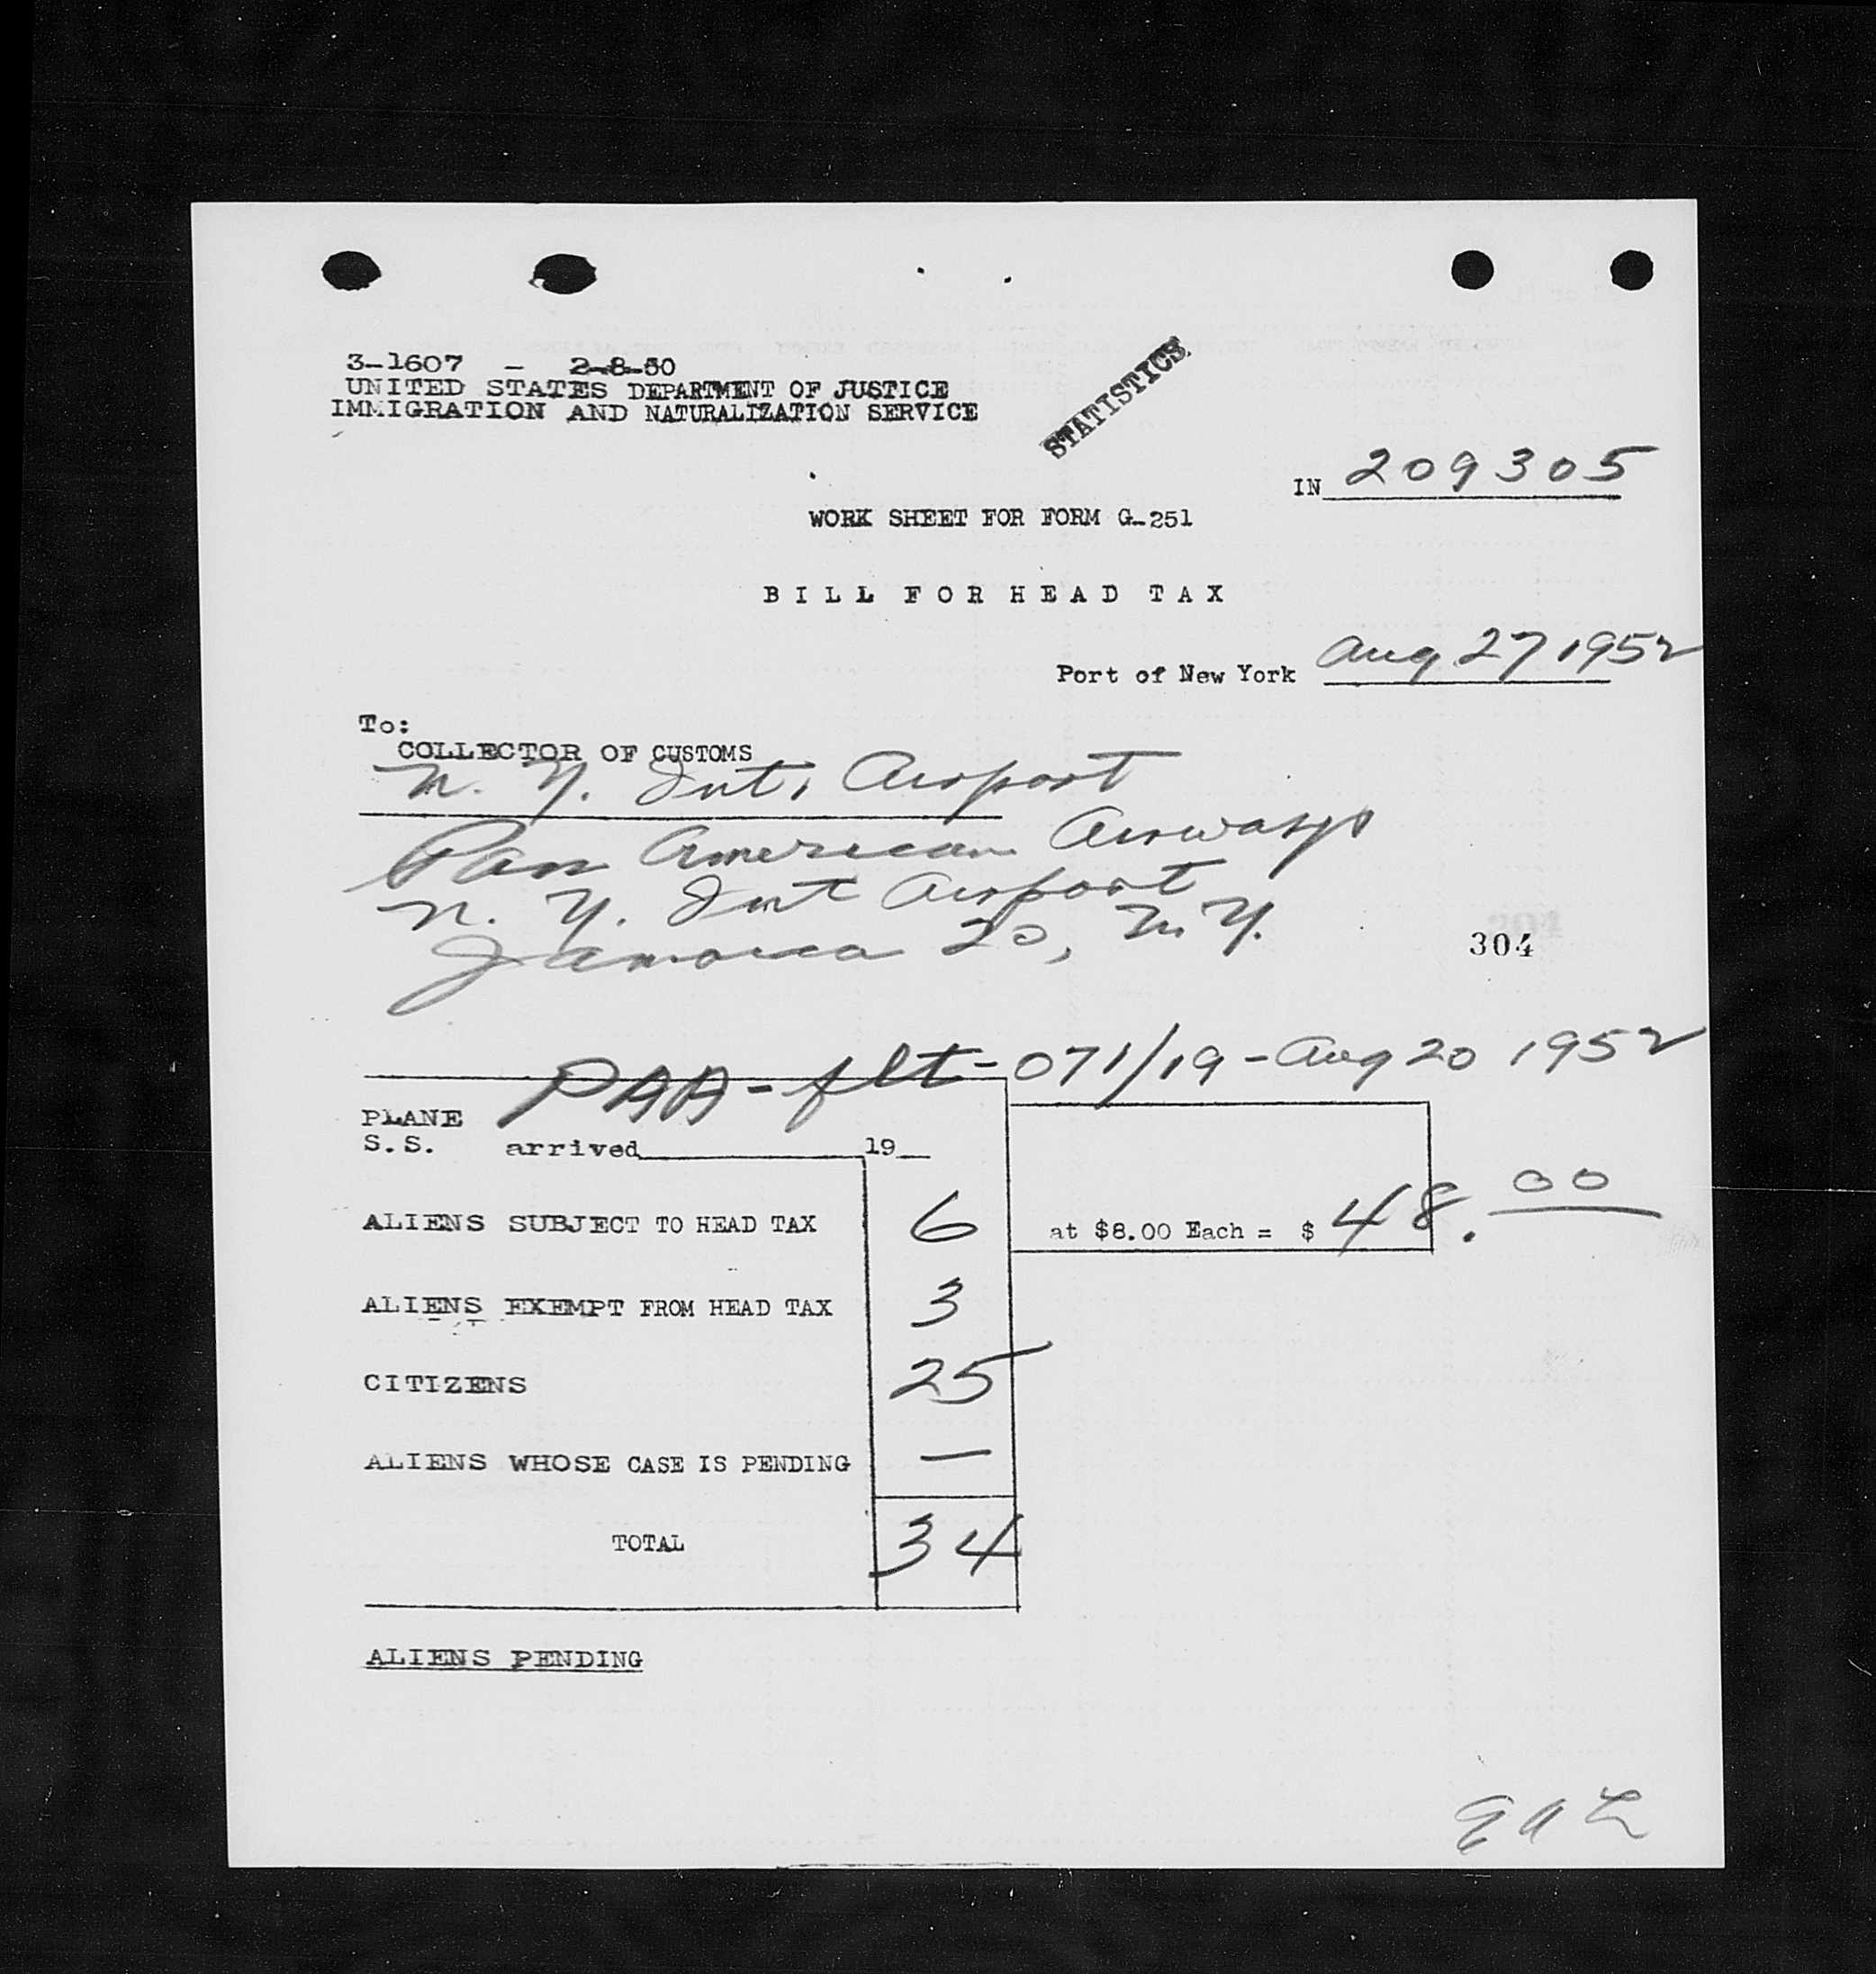 3-1607 - 2-8-50
UNITED STATES DEPARTMENT OF JUSTICE
IMMIGRATION AND NATURALIZATION SERVICE
STATISTICS
IN 209305
WORK SHEET FOR FORM G-251
BILL FOR HEAD TAX
Port of New York Aug 27 1952
To:
COLLECTOR OF CUSTOMS
N. Y. Int. Airport
Pan American Airways
N. Y. Int Airport
Jamaica 20, N.Y.
304
PAA - flt - 071/19 - Aug 20 1952
PLANE
S.S. arrived 19
ALIENS SUBJECT TO HEAD TAX 6 at $8.00 Each = $ 48.00
ALIENS EXEMPT FROM HEAD TAX 3
CITIZENS 25
ALIENS WHOSE CASE IS PENDING —
TOTAL 34
ALIENS PENDING